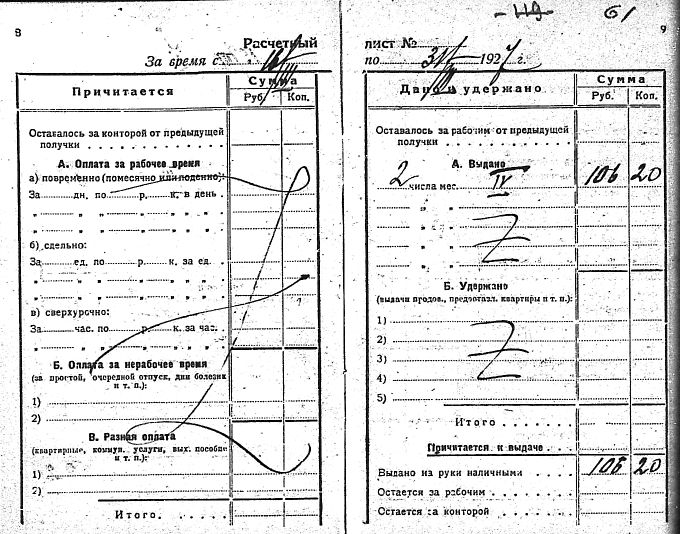 8
Расчетный
За время с
Причитается
Сумма
Руб.
Коп.
Оставалось за конторой от предыдущей
получки
А. Оплата за рабочее время
а) повременно (помесячно или поденно):
За дн. по р. к. в день
" " " " "
" " " " "
б) сдельно:
За ед. по р. к. за ед.
" " " " "
" " " " "
в) сверхурочно:
За час. по р. к. за час.
" " " " "
Б. Оплата за нерабочее время
(за простой, очередной отпуск, дни болезни
и т. п.):
1)
2)
В. Разная оплата
(квартирные, коммун. услуги, вых. пособие
и т. п.):
1)
2)
Итого.
119
61
9
лист №
по 31 1927 г.
Дано и удержано
Сумма
Руб.
Коп.
Оставалось за рабочим от предыдущей
получки
А. Выдано
2 числа мес. IV 106 20
" "
" "
" "
" "
Б. Удержано
(выдачи продов., предоставл. квартиры и т. п.):
1)
2)
3)
4)
5)
Итого
Причитается к выдаче
Выдано на руки наличными 106 20
Остается за рабочим
Остается за конторой